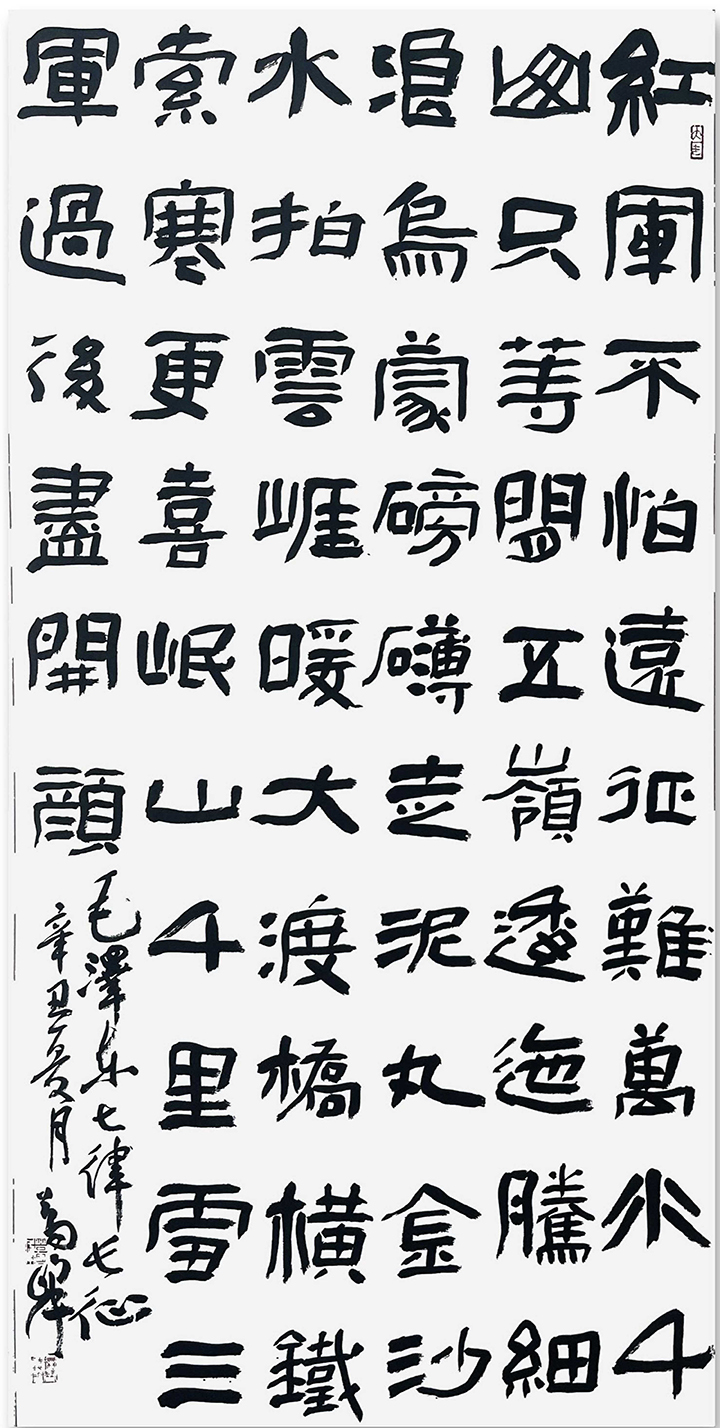 紅軍不怕遠征難萬水千
山只等閒五嶺逶迤騰細
浪烏蒙磅礴走泥丸金沙
水拍雲崖暖大渡橋橫鐵
索寒更喜岷山千里雪三
軍過後盡開顏
毛澤东七律长征
辛丑夏月